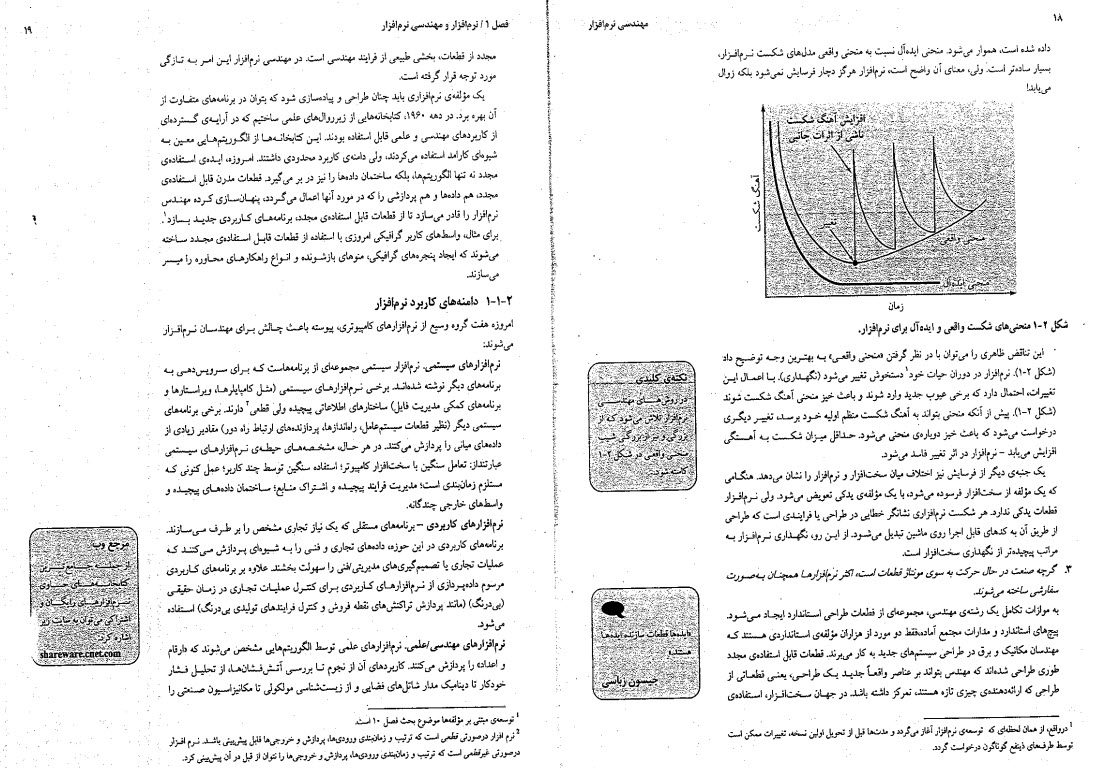 ۱۸
مهندسی نرم‌افزار
داده شده است، هموار می‌شود. منحنی ایده‌آل نسبت به منحنی واقعی مدل‌های شکست نرم‌افزار،
بسیار ساده‌تر است. ولی، معنای آن واضح است، نرم‌افزار هرگز دچار فرسایش نمی‌شود بلکه زوال
می‌یابد!
افزایش آهنگ شکست
ناشی از اثرات جانبی
آهنگ شکست
تغییر
منحنی واقعی
منحنی ایده‌آل
زمان
شکل ۲-۱ منحنی‌های شکست واقعی و ایده‌آل برای نرم‌افزار.
این تناقض ظاهری را می‌توان با در نظر گرفتن «منحنی واقعی» به بهترین وجه توضیح داد
(شکل ۲-۱). نرم‌افزار در دوران حیات خود۱ دستخوش تغییر می‌شود (نگهداری). با اعمال این
تغییرات، احتمال دارد که برخی عیوب جدید وارد شوند و باعث خیز منحنی آهنگ شکست شوند
(شکل ۲-۱). پیش از آنکه منحنی بتواند به آهنگ شکست منظم اولیه خود برسد، تغییر دیگری
درخواست می‌شود که باعث خیز دوباره‌ی منحنی می‌شود. حداقل میزان شکست به آهستگی
افزایش می‌یابد - نرم‌افزار در اثر تغییر فاسد می‌شود.
یک جنبه‌ی دیگر از فرسایش نیز اختلاف میان سخت‌افزار و نرم‌افزار را نشان می‌دهد. هنگامی
که یک مؤلفه از سخت‌افزار فرسوده می‌شود، با یک مؤلفه‌ی یدکی تعویض می‌شود. ولی نرم‌افزار
قطعات یدکی ندارد. هر شکست نرم‌افزاری نشانگر خطایی در طراحی یا فرایندی است که طراحی
از طریق آن به کدهای قابل اجرا روی ماشین تبدیل می‌شود. از این رو، نگهداری نرم‌افزار به
مراتب پیچیده‌تر از نگهداری سخت‌افزار است.
۳. گرچه صنعت در حال حرکت به سوی مونتاژ قطعات است، اکثر نرم‌افزارها همچنان به‌صورت
سفارشی ساخته می‌شوند.
به موازات تکامل یک رشته‌ی مهندسی، مجموعه‌ای از قطعات طراحی استاندارد ایجاد می‌شود.
پیچ‌های استاندارد و مدارات مجتمع آماده،فقط دو مورد از هزاران مؤلفه‌ی استانداردی هستند که
مهندسان مکانیک و برق در طراحی سیستم‌های جدید به کار می‌برند. قطعات قابل استفاده‌ی مجدد
طوری طراحی شده‌اند که مهندس بتواند بر عناصر واقعاً جدید یک طراحی، یعنی قطعاتی از
طراحی که ارائه‌دهنده‌ی چیزی تازه هستند، تمرکز داشته باشد. در جهان سخت‌افزار، استفاده‌ی
۱ درواقع، از همان لحظه‌ای که توسعه‌ی نرم‌افزار آغاز می‌گردد و مدت‌ها قبل از تحویل اولین نسخه، تغییرات ممکن است
توسط طرف‌های ذینفع گوناگون درخواست گردد.
نکته‌ی کلیدی
در روش‌های مهندسی
نرم‌افزار تلاش می‌شود که از
بزرگی و نیز از بزرگی شیب
منحنی واقعی در شکل ۲-۱
کاسته شود.
«ایده‌ها قطعات سازنده ایده‌ها
هستند»
جیسون زباسی
فصل ۱ / نرم‌افزار و مهندسی نرم‌افزار
۱۹
مجدد از قطعات، بخشی طبیعی از فرایند مهندسی است. در مهندسی نرم‌افزار این امر به تازگی
مورد توجه قرار گرفته است.
یک مؤلفه‌ی نرم‌افزاری باید چنان طراحی و پیاده‌سازی شود که بتوان در برنامه‌های متفاوت از
آن بهره برد. در دهه ۱۹۶۰، کتابخانه‌هایی از زیرروال‌های علمی ساختیم که در آرایه‌ی گسترده‌ای
از کاربردهای مهندسی و علمی قابل استفاده بودند. این کتابخانه‌ها از الگوریتم‌هایی معین به
شیوه‌ای کارامد استفاده می‌کردند، ولی دامنه‌ی کاربرد محدودی داشتند. امروزه، ایده‌ی استفاده‌ی
مجدد نه تنها الگوریتم‌ها، بلکه ساختمان داده‌ها را نیز در بر می‌گیرد. قطعات مدرن قابل استفاده‌ی
مجدد، هم داده‌ها و هم پردازشی را که در مورد آنها اعمال می‌گردد، پنهان‌سازی کرده مهندس
نرم‌افزار را قادر می‌سازد تا از قطعات قابل استفاده‌ی مجدد، برنامه‌های کاربردی جدید بسازد۱.
برای مثال، واسط‌های کاربر گرافیکی امروزی با استفاده از قطعات قابل استفاده‌ی مجدد ساخته
می‌شوند که ایجاد پنجره‌های گرافیکی، منوهای بازشونده و انواع راهکارهای محاوره را میسر
می‌سازند.
۱-۱-۲ دامنه‌های کاربرد نرم‌افزار
امروزه هفت گروه وسیع از نرم‌افزارهای کامپیوتری، پیوسته باعث چالش برای مهندسان نرم‌افزار
می‌شوند:
نرم‌افزارهای سیستمی. نرم‌افزار سیستمی مجموعه‌ای از برنامه‌هاست که برای سرویس‌دهی به
برنامه‌های دیگر نوشته شده‌اند. برخی نرم‌افزارهای سیستمی (مثل کامپایلرها، ویراستارها و
برنامه‌های کمکی مدیریت فایل) ساختارهای اطلاعاتی پیچیده ولی قطعی۲ دارند. برخی برنامه‌های
سیستمی دیگر (نظیر قطعات سیستم‌عامل، راه‌اندازها، پردازنده‌های ارتباط راه دور) مقادیر زیادی از
داده‌های میانی را پردازش می‌کنند. در هر حال، مشخصه‌های حیطه‌ی نرم‌افزارهای سیستمی
عبارتنداز: تعامل سنگین با سخت‌افزار کامپیوتر؛ استفاده سنگین توسط چند کاربر؛ عمل کنونی که
مستلزم زمان‌بندی است؛ مدیریت فرایند پیچیده و اشتراک منابع؛ ساختمان داده‌های پیچیده و
واسط‌های خارجی چندگانه.
نرم‌افزارهای کاربردی – برنامه‌های مستقلی که یک نیاز تجاری مشخص را بر طرف می‌سازند.
برنامه‌های کاربردی در این حوزه، داده‌های تجاری و فنی را به شیوه‌ای پردازش می‌کنند که
عملیات تجاری یا تصمیم‌گیری‌های مدیریتی/فنی را سهولت بخشند. علاوه بر برنامه‌های کاربردی
مرسوم داده‌پردازی از نرم‌افزارهای کاربردی برای کنترل عملیات تجاری در زمان حقیقی
(بی‌درنگ) (مانند پردازش تراکنش‌های نقطه فروش و کنترل فرایندهای تولیدی بی‌درنگ) استفاده
می‌شود.
نرم‌افزارهای مهندسی/علمی. نرم‌افزارهای علمی توسط الگوریتم‌هایی مشخص می‌شوند که «ارقام
و اعداد» را پردازش می‌کنند. کاربردهای آن از نجوم تا بررسی آتش‌فشان‌ها، از تحلیل فشار
خودکار تا دینامیک مدار شاتل‌های فضایی و از زیست‌شناسی مولکولی تا مکانیزاسیون صنعتی را
۱ توسعه‌ی مبتنی بر مؤلفه‌ها موضوع بحث فصل ۱۰ است.
۲ نرم افزار درصورتی قطعی است که ترتیب و زمان‌بندی ورودی‌ها، پردازش و خروجی‌ها قابل پیش‌بینی باشد. نرم افزار
درصورتی غیرقطعی است که ترتیب و زمان‌بندی ورودی‌ها، پردازش و خروجی‌ها را نتوان از قبل در آن پیش‌بینی کرد.
مرجع وب
از جمله جامع‌ترین
کتابخانه‌های حاوی
نرم‌افزارهای رایگان و
اشتراکی می‌توان به سایت زیر
اشاره کرد:
shareware.cnet.com